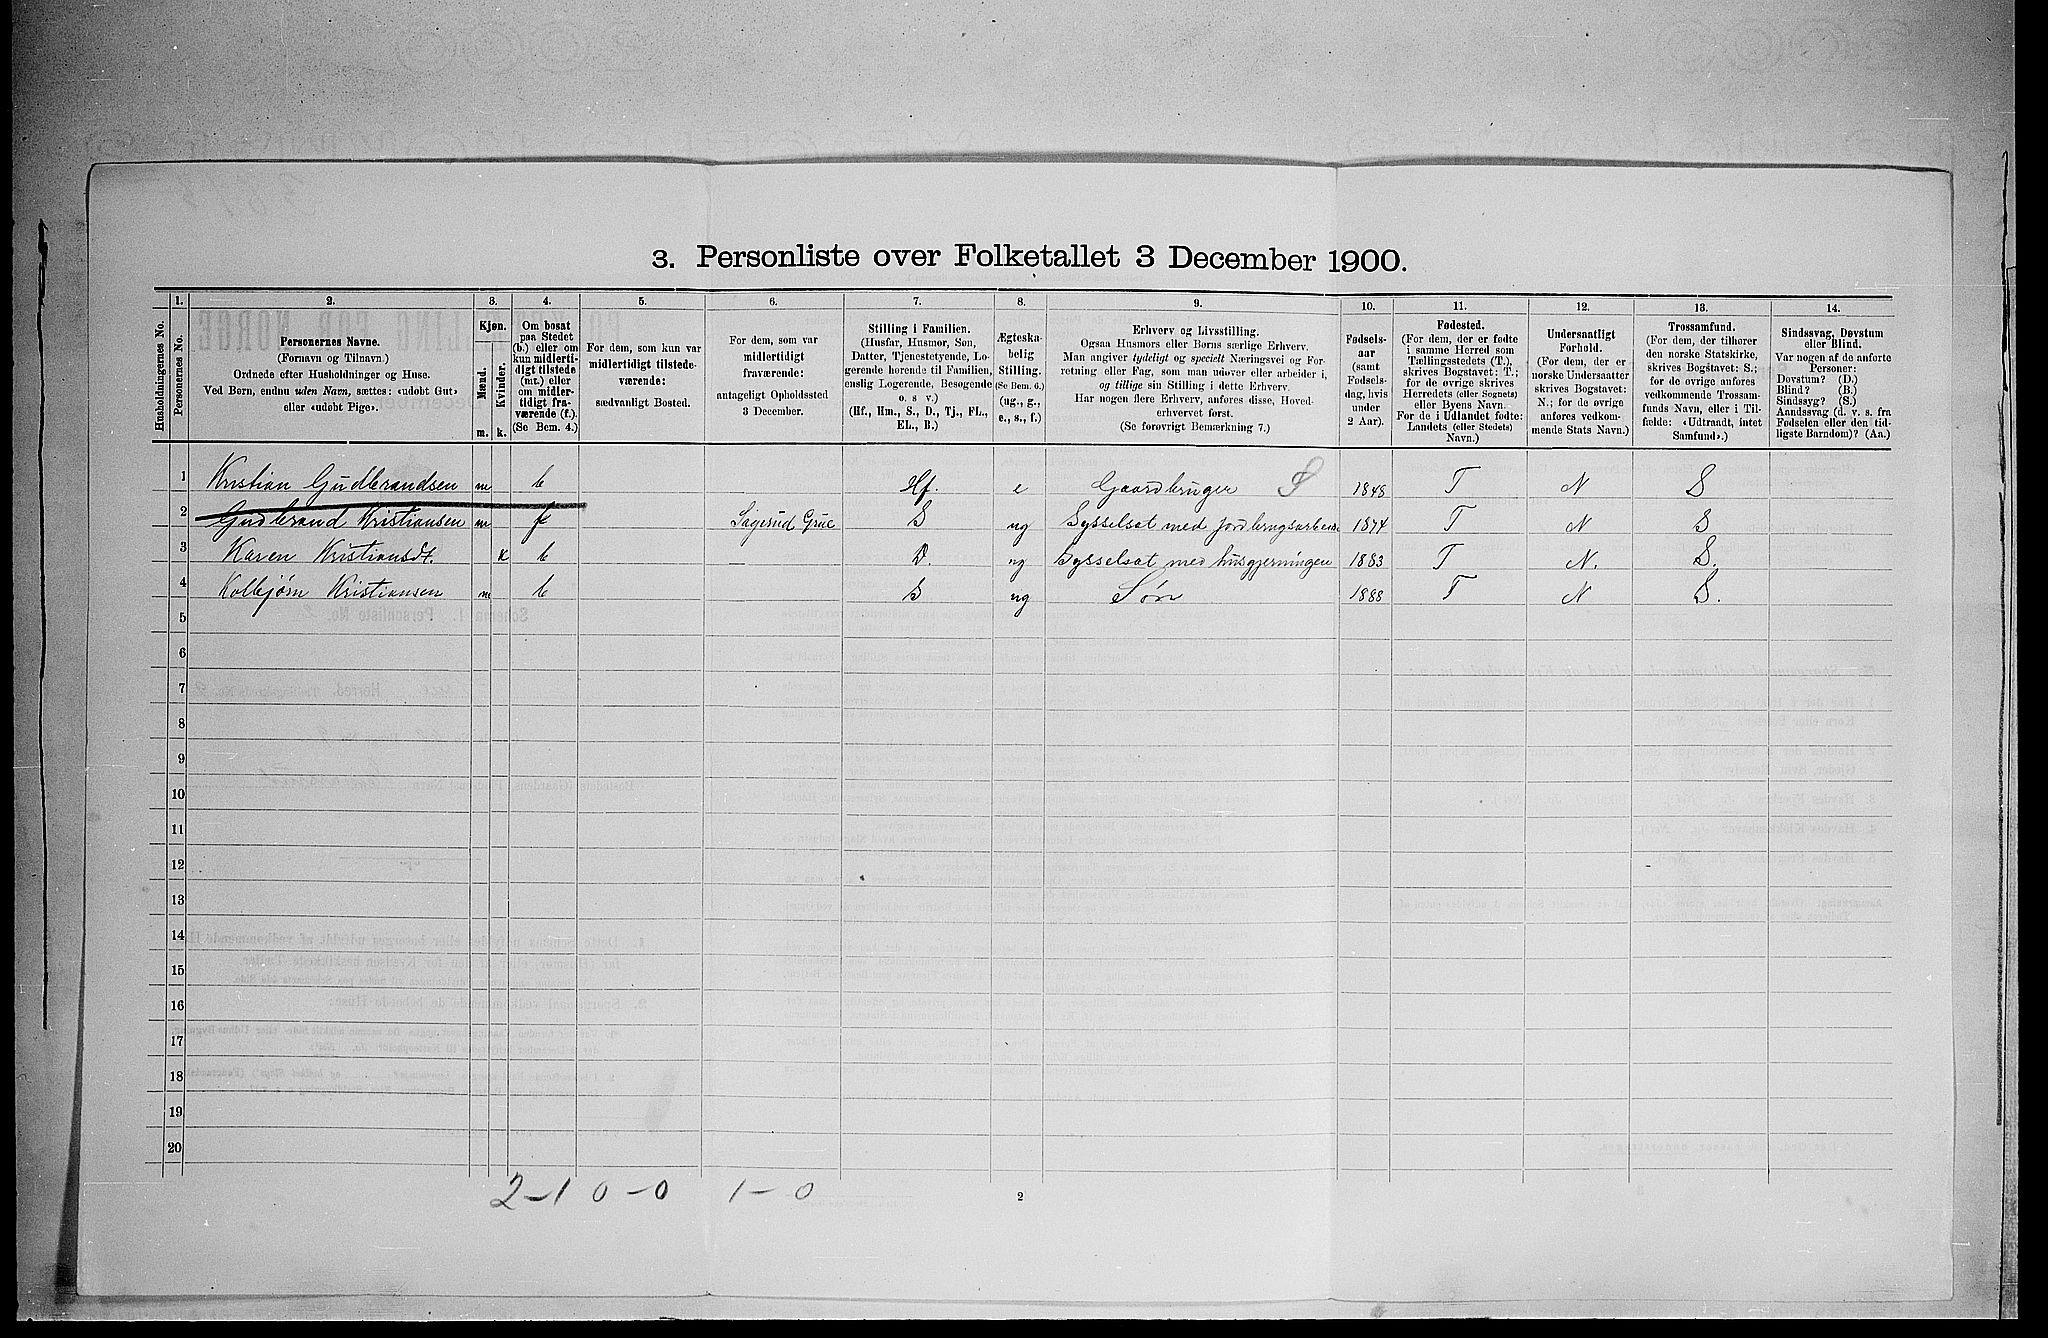 3. Personliste over Folketallet 3 December 1900.
Husholdningernes No.
1.
Personernes No.
2.
Personernes Navne.
(Fornavn og Tilnavn.)
Ordnede efter Husholdninger og Huse.
Ved Børn, endnu uden Navn, sættes: «udøbt Gut»
eller «udøbt Pige».
3.
Kjøn.
Mænd.
Kvinder.
m. k.
4.
Om bosat
paa Stedet
(b.) eller om
kun midlerti-
digt tilstede
(mt.) eller
om midler-
tidigt fra-
værende (f.).
(Se Bem. 4.)
5.
For dem, som kun var
midlertidigt tilstede-
værende:
sædvanligt Bosted.
6.
For dem, som var
midlertidigt
fraværende:
antageligt Opholdssted
3 December.
7.
Stilling i Familien.
(Husfar, Husmor, Søn,
Datter, Tjenestetyende, Lo-
gerende hørende til Familien,
enslig Logerende, Besøgende
o. s v.)
(Hf., Hm., S., D., Tj., FL.,
EL., B.)
8.
Ægteska-
belig
Stilling.
(Se Bem. 6.)
(ug., g.,
e., s., f.)
9.
Erhverv og Livsstilling.
Ogsaa Husmors eller Børns særlige Erhverv.
Man angiver tydeligt og specielt Næringsvei og For-
retning eller Fag, som man udøver eller arbeider i,
og tillige sin Stilling i dette Erhverv.
Har nogen flere Erhverv, anføres disse, Hoved-
erhvervet først.
(Se forøvrigt Bemærkning 7.)
10.
Fødsels-
aar
(samt
Fødsels-
dag, hvis
under
2 Aar).
11.
Fødested.
(For dem, der er fødte
i samme Herred som
Tællingsstedets (T.),
skrives Bogstavet: T.;
for de øvrige skrives
Herredets (eller Sognets)
eller Byens Navn.
For de i Udlandet fødte:
Landets (eller Stedets)
Navn.)
12.
Undersaatligt
Forhold.
(For dem, der er
norske Undersaatter
skrives Bogstavet:
N.; for de øvrige
anføres vedkom-
mende Stats Navn.)
13.
Trossamfund.
(For dem, der tilhører
den norske Statskirke,
skrives Bogstavet: S.;
for de øvrige anføres
vedkommende Trossam-
funds Navn, eller i Til-
fælde: «Udtraadt, intet
Samfund».)
14.
Sindssvag, Døvstum
eller Blind.
Var nogen af de anførte
Personer:
Døvstum? (D.)
Blind? (B.)
Sindssyg? (S.)
Aandssvag (d. v. s. fra
Fødselen eller den tid-
ligste Barndom)? (Aa.)
1 Kristian Gudbrandsen m b Hf. e Gaardbruger S 1848 T N S
2 Gudbrand Kristiansen m f Sagerud Grue S ug Sysselsat med jordbrugsarbeide 1874 T N S
3 Karen Kristiansdt. k b — D. ug Sysselsat med husgjerningen 1883 T N. S.
4 Kolbjørn Kristiansen m b S ug Søn 1888 T N S.
5
6
7
8
9
10
11
12
13
14
15
16
17
18
19
20
2-1 0-0 1-0
2